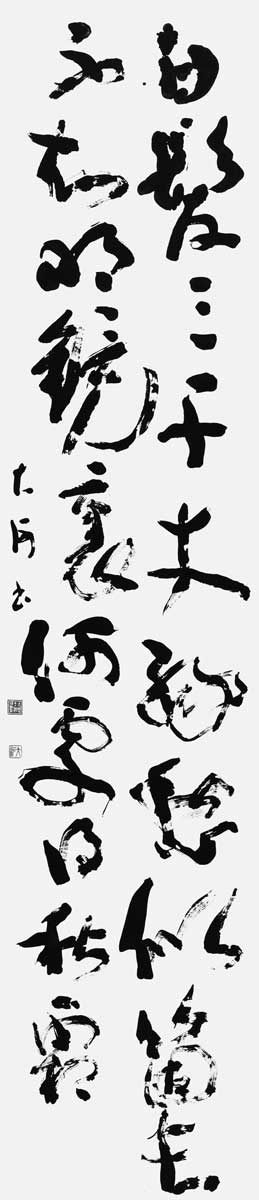 白髮三千丈緣愁似箇長
不知明鏡裏何處得秋霜
大河书